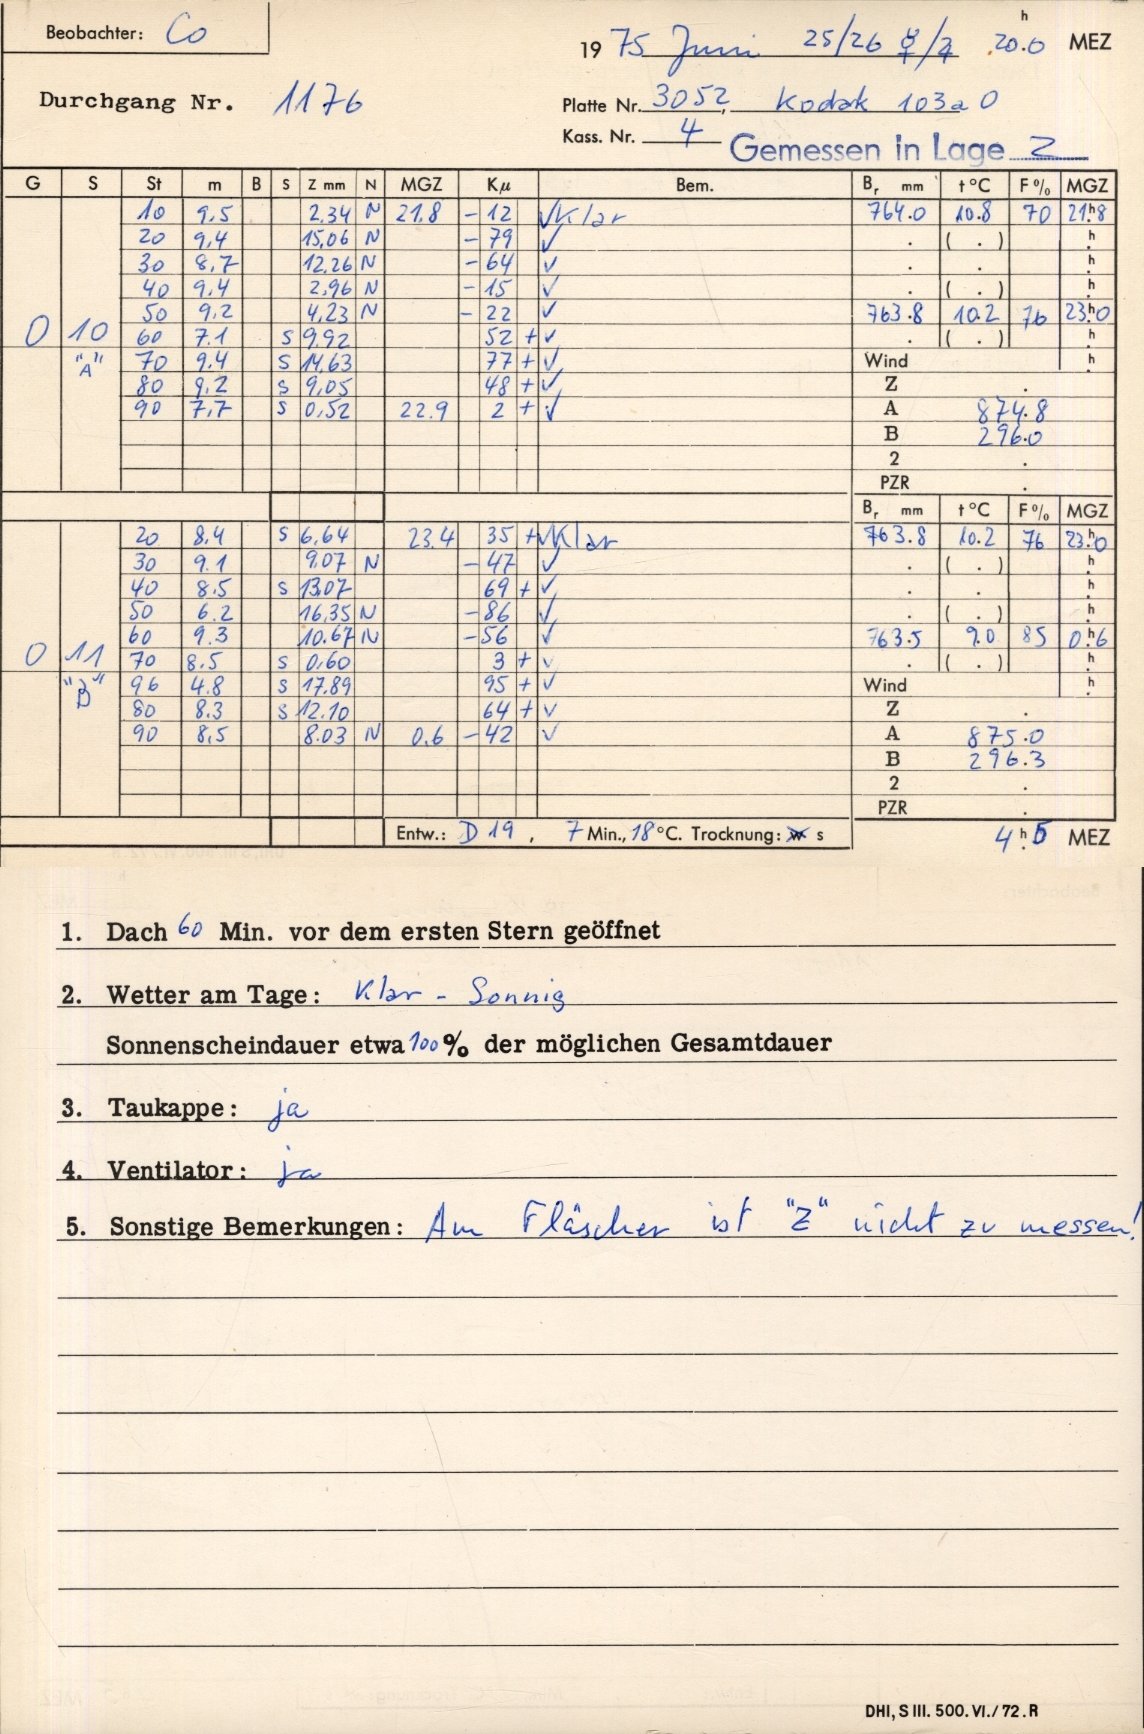 Beobachter: Co
h
19 75 Juni 25/26 ☿/♃ 20.0 MEZ
Durchgang Nr. 1176
Platte Nr. 3052, Kodak 103a0
Kass. Nr. 4 Gemessen in Lage Z
G S St m B S Z mm N MGZ Kμ Bem. Br mm t °C F% MGZ
10 9,5 2,34 N 21,8 - 12 √ Klar 764.0 10.8 70 21.h8
20 9,4 15,06 N - 79 √ . ( . ) .h
30 8,7 12,26 N - 64 √ . . .h
40 9,4 2,96 N - 15 √ . ( . ) .h
50 9,2 4,23 N - 22 √ 763.8 10.2 76 23.h0
0 10 60 7.1 S 9,92 52 + √ . ( . ) .h
"A" 70 9.4 S 14,63 77 + √ Wind .h
80 9,2 S 9,05 48 + √ Z .
90 7,7 S 0,52 22.9 2 + √ A 874.8
B 296.0
2 .
PZR .
Br mm t °C F% MGZ
20 8,4 S 6,64 23.4 35 + √ Klar 763.8 10.2 76 23.h0
30 9.1 9,07 N - 47 √ . ( . ) .h
40 8,5 S 13,07 69 + √ . . .h
50 6.2 16,35 N - 86 √ . ( . ) .h
60 9.3 10.67 N - 56 √ 763.5 9.0 85 0.h6
0 11 70 8.5 S 0,60 3 + √ . ( . ) .h
"B" 96 4.8 S 17.89 95 + √ Wind .h
80 8.3 S 12.10 64 + √ Z .
90 8,5 8.03 N 0.6 - 42 √ A 875.0
B 296.3
2 .
PZR .
Entw.: D 19, 7 Min., 18 °C. Trocknung: w s 4.h5 MEZ
1. Dach 60 Min. vor dem ersten Stern geöffnet
2. Wetter am Tage: Klar - Sonnig
Sonnenscheindauer etwa 100% der möglichen Gesamtdauer
3. Taukappe: ja
4. Ventilator: ja
5. Sonstige Bemerkungen: Am Fläscher ist "Z" nicht zu messen!
DHI, S III. 500. VI./72. R